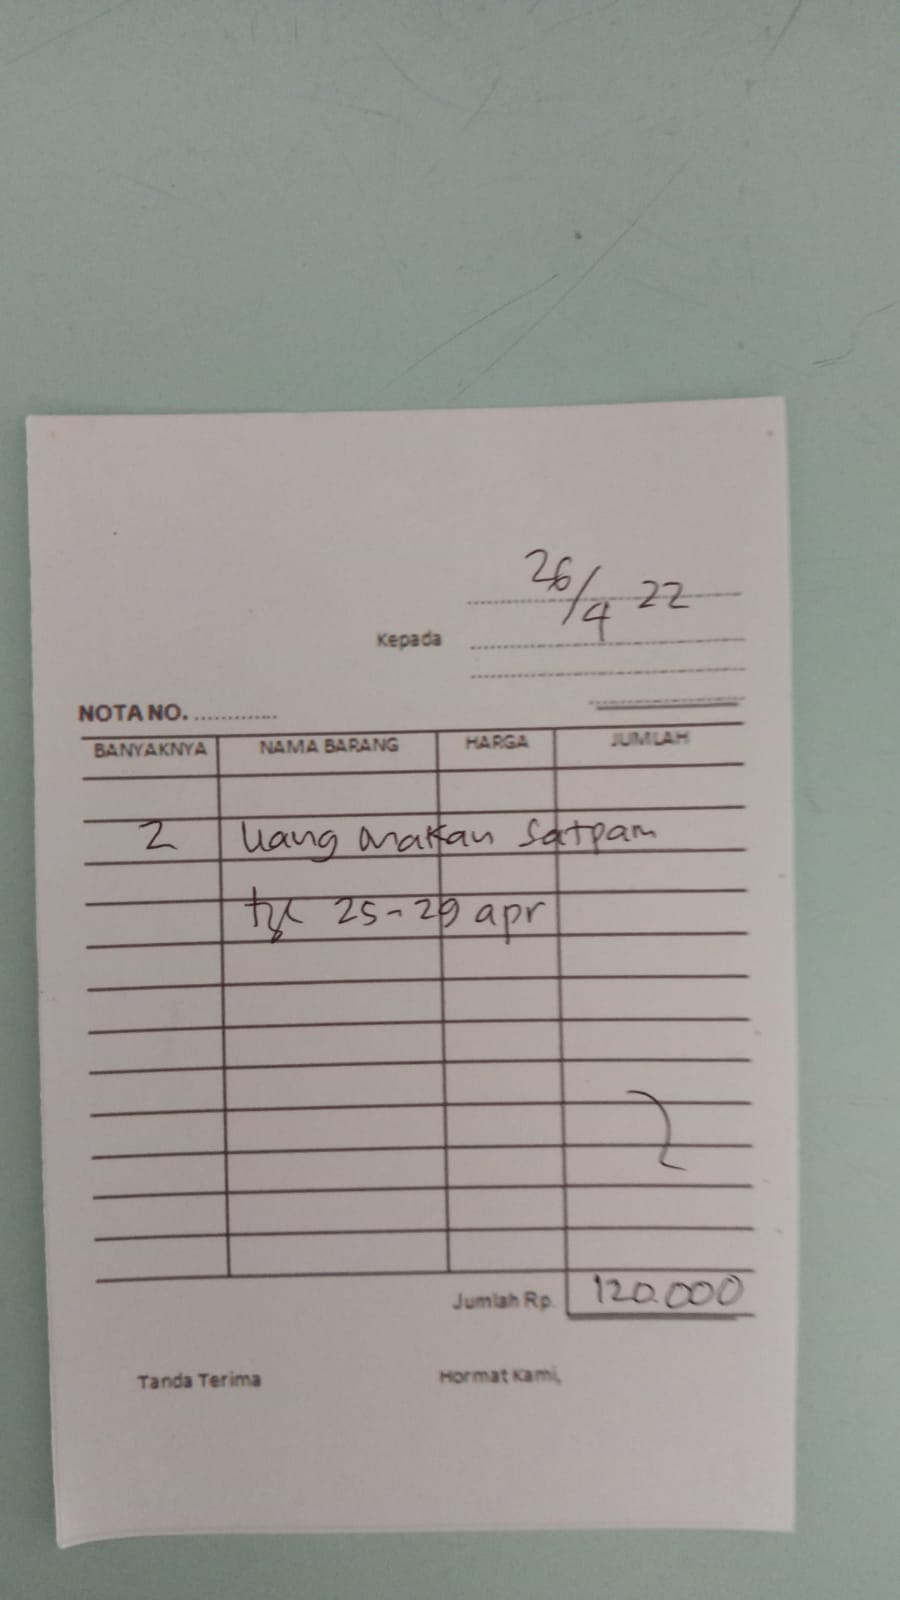 26/4 22
Kepada
NOTA NO. .............
BANYAKNYA NAMA BARANG HARGA JUMLAH
2 Uang makan Satpam
25-29 apr
Jumlah Rp. 120.000
Tanda Terima Hormat Kami,